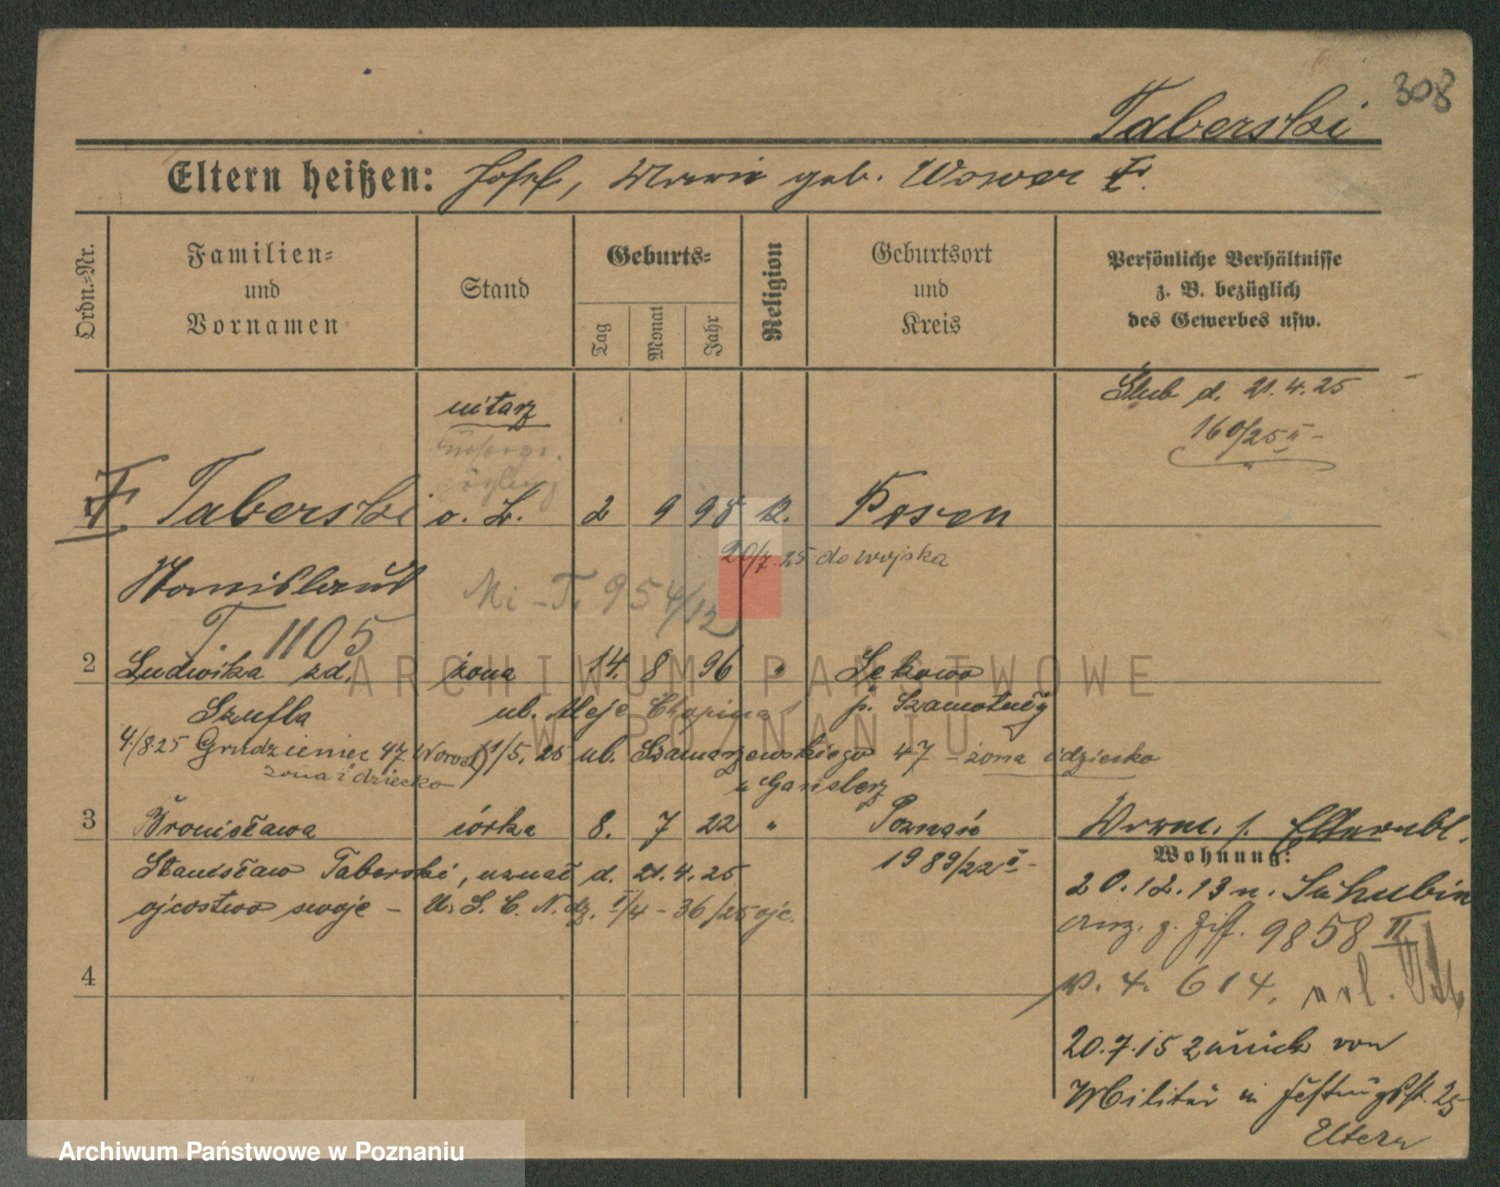 308
Taberski
Eltern heißen: Josef, Marie geb. Wower
Ordn.-Nr.
Familien-
und
Vornamen
Stand
Geburts-
Tag
Monat
Jahr
Religion
Geburtsort
und
Kreis
Persönliche Verhältnisse
z. B. bezüglich
des Gewerbes usw.
Ślub d. 21.4.25
160/25 II -
Taberski o. B. 2 9 95 k. Posen
20/7.25 do wojska
Stanislaus
Mi - T. 954/12
T. 1105
2 Ludwika zd. żona 14. 8 96 " Sękowo
Szufla ul. Aleje Chopina p. Szamotuły
4/8 25 Grudzieniec 47 1/5. 25 ul. Szamarzewskiego 47 - żona i dziecko
żona i dziecko
3 Bronisława córka 8. 7 22 " Poznań
1989/22 I -
Stanisław Taberski, uznał d. 21.4.25
ojcostwo swoje - U. S. C. N. dz. I/4 - 36/25 ojc.
Wohnung:
20.12.13 n. Schubin
anz. z. Ziff. 9858 II
v. 4. 614.
4
20.7.15 zurück von
Militär in 25
Eltern
ARCHIWUM PAŃSTWOWE
W POZNANIU
Archiwum Państwowe w Poznaniu